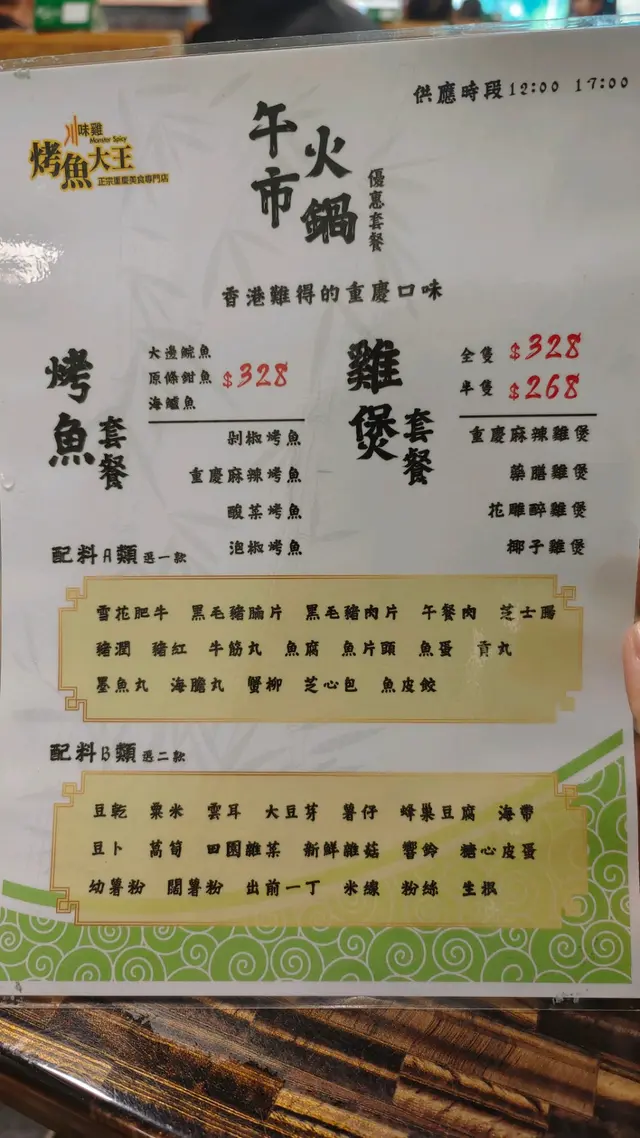 供應時段12:00 17:00
川味雞
Monster Spicy
烤魚大王
正宗重慶美食專門店
午市火鍋
優惠套餐
香港難得的重慶口味
烤魚套餐
大邊鯇魚
原條鉗魚 $328
海鱸魚
剁椒烤魚
重慶麻辣烤魚
酸菜烤魚
泡椒烤魚
雞煲套餐
全隻 $328
半隻 $268
重慶麻辣雞煲
藥膳雞煲
花雕醉雞煲
椰子雞煲
配料A類 選一款
雪花肥牛 黑毛豬腩片 黑毛豬肉片 午餐肉 芝士腸
豬潤 豬紅 牛筋丸 魚腐 魚片頭 魚蛋 貢丸
墨魚丸 海膽丸 蟹柳 芝心包 魚皮餃
配料B類 選二款
豆乾 粟米 雲耳 大豆芽 薯仔 蜂巢豆腐 海帶
豆卜 萵筍 田園雜菜 新鮮雜菇 響鈴 糖心皮蛋
幼薯粉 闊薯粉 出前一丁 米線 粉絲 生根